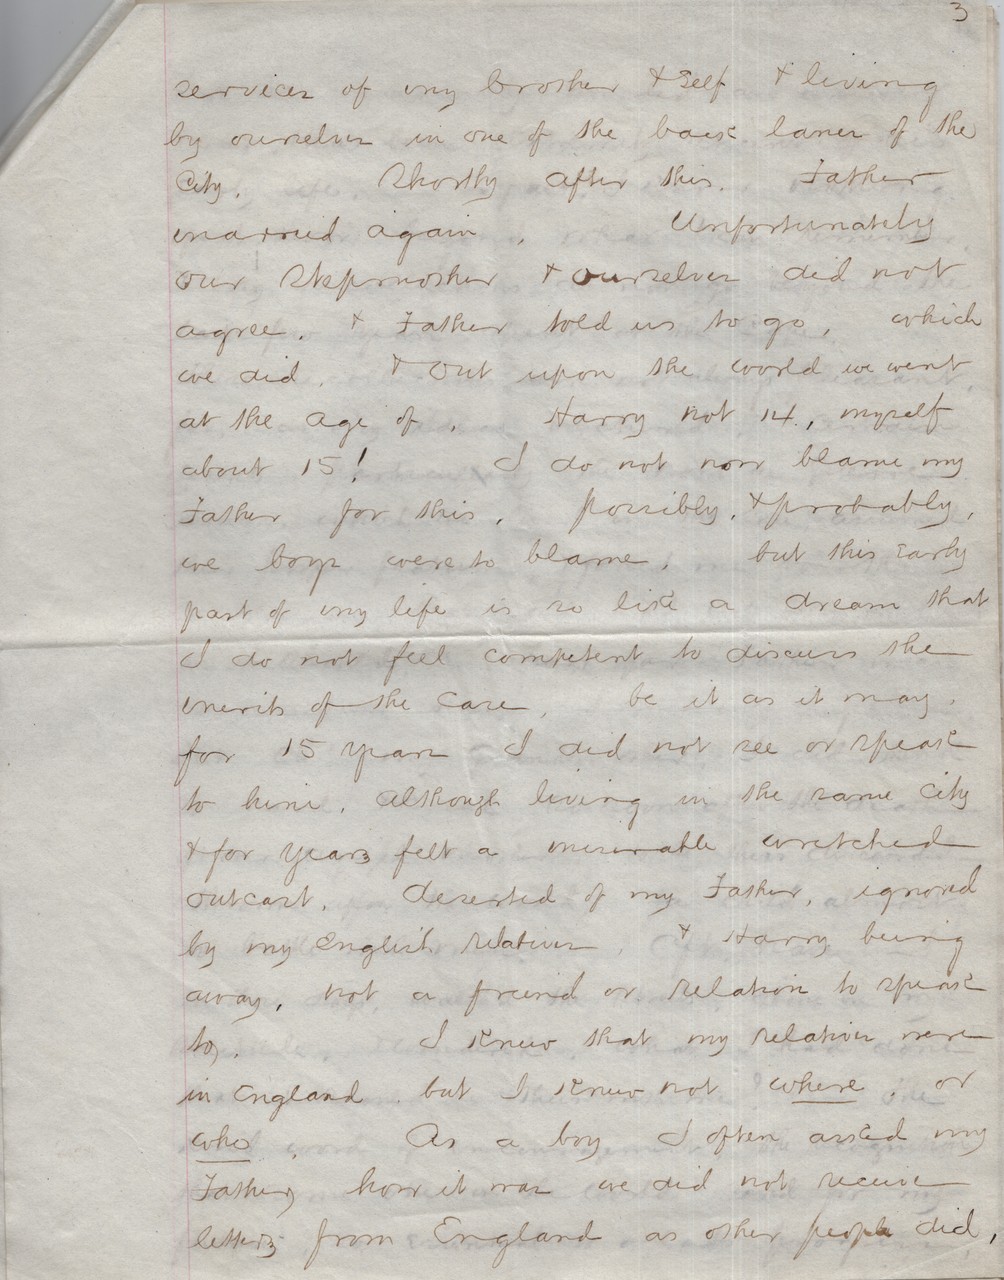 3
services of my brother & self & living
by ourselves in one of the back lanes of the
City. Shortly after this. Father
married again. Unfortunately
our Stepmother & ourselves did not
agree. & Father told us to go, which
we did. & out upon the world we went
at the age of, Harry not 14, myself
about 15! I do not now blame my
Father for this. possibly, & probably,
we boys were to blame, but this early
part of my life is so like a dream that
I do not feel competent to discuss the
merits of the case, be it as it may.
for 15 years I did not see or speak
to him. Although living in the same City
& for years felt a miserable wretched
outcast. deserted of my Father, ignored
by my English relatives, & Harry being
away, not a friend or relation to speak
to. I knew that my relatives were
in England but I knew not where, or
who. As a boy I often asked my
Father, how it was we did not receive
letters from England as other people did,